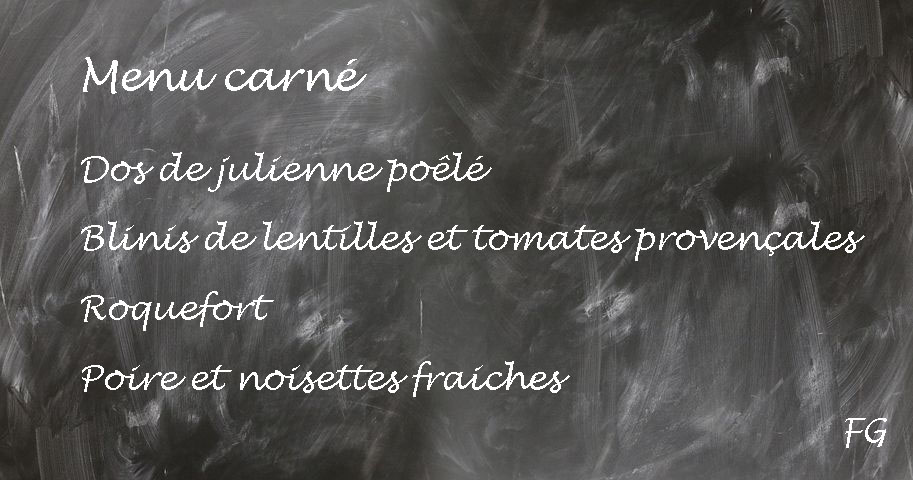 Menu carné
Dos de julienne poêlé
Blinis de lentilles et tomates provençales
Roquefort
Poire et noisettes fraiches
FG